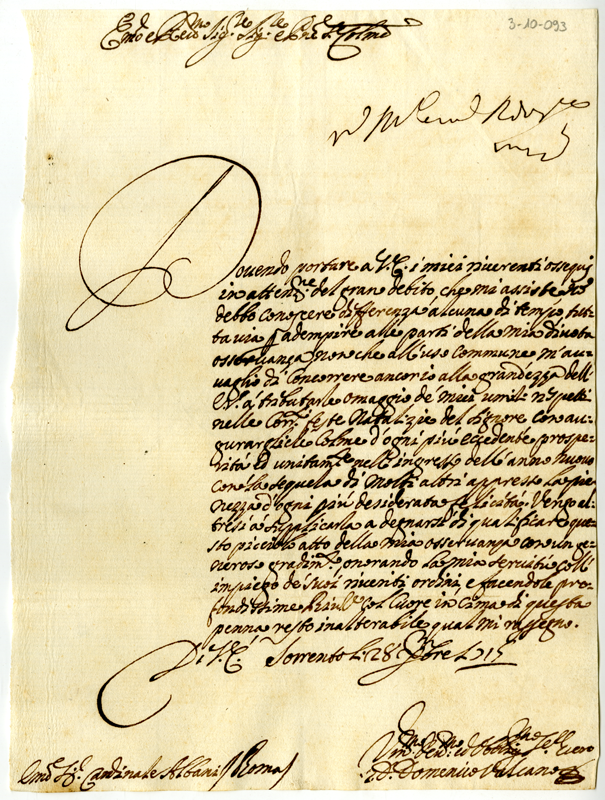 3-10-093
Em.o e R.mo Sig.re Sig.re e P.ne Col.mo
Dovendo portare a V.E. i miei riverenti ossequij
in atten.ne del gran debito, che mi assiste
debbo conoscere differenza alcuna di tempo tut-
ta via p adempire alle parti della mia divota
osservanza, non che all'uso commune m'au-
vaglio di concorrere ancor io alla grandezza dell'
E.V. á tributarle omaggio de miei umili rispetti
nelle Corr.ti feste Natalizie del Signore con au-
gurargliele colme d'ogni piú eccedente prospe-
ritá ed unitam.te nell'ingresso dell'anno nuovo
con la sequela di molti altri appresso la pie-
nezza d'ogni piú desiderata felicitá. Vengo al-
tresi á supplicarla a degnarsi di qualificare que-
sto picciol atto della mia osservanza con un ge-
neroso gradim.to onorando la mia servitú coll'
impiego de suoi riveriti ordini, e facendole pro-
fondissime River.ze col cuore in cima di questa
penna resto inalterabile qual mi rassegno.
Di V.E. Sorrento li 28 Xmbre 1715
Um.mo Dev.mo ed Obblig.mo Ser.
D. Domenico Vulcano
Em.o Sig.r Cardinale Albani // Roma //